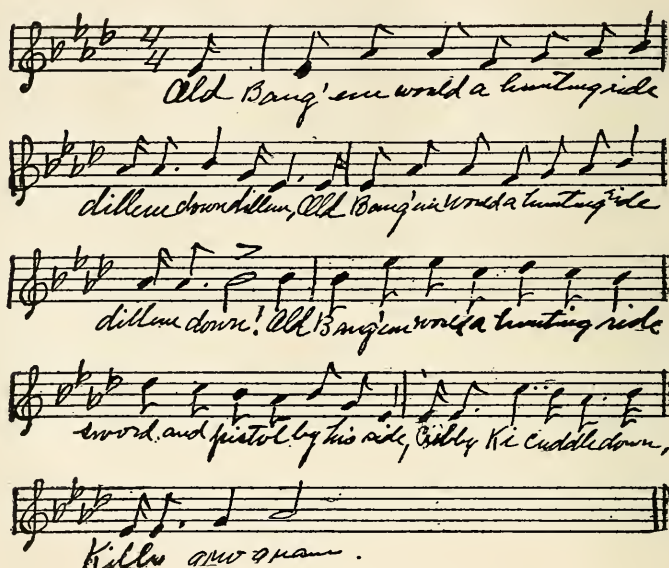 4
4
Old Bang'em would a hunting ride
dillem down dillem, Old Bang'em would a hunting ride
dillem down! Old Bang'em would a hunting ride
sword and pistol by his side, Cubby Ki Cuddle down,
Killy quo quam.